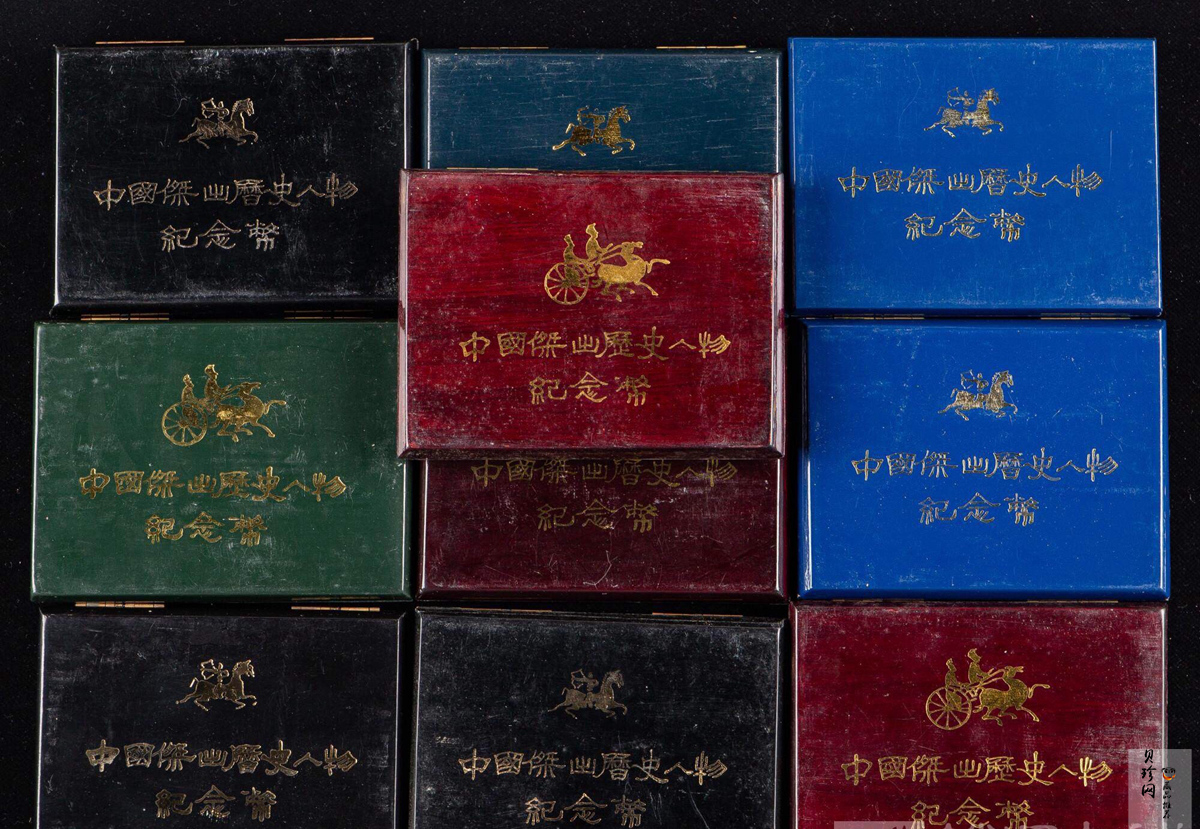 中國傑出曆史人物
紀念幣
中國傑出曆史人物
紀念幣
中國傑出歷史人物
紀念幣
中國傑出歷史人物
紀念幣
中國傑出曆史人物
紀念幣
中國傑出曆史人物
紀念幣
中國傑出曆史人物
紀念幣
中國傑出曆史人物
紀念幣
中國傑出歷史人物
紀念幣
贝珍网